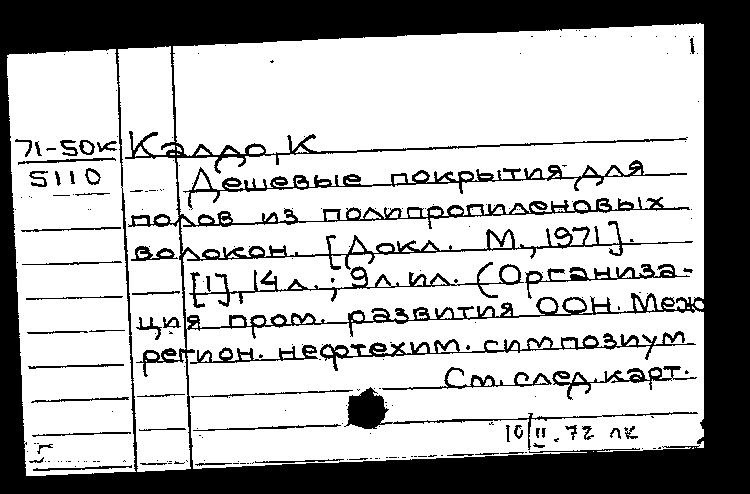 1
71-50к Калдо, К
5110 Дешевые покрытия для
полов из полипропиленовых
волокон. [Докл. М., 1971].
[1], 14 л.; 9 л. ил. (Организа-
ция пром. развития ООН. Меж
регион. нефтехим. симпозиум
См. след. карт.
10/II.72 лк
5